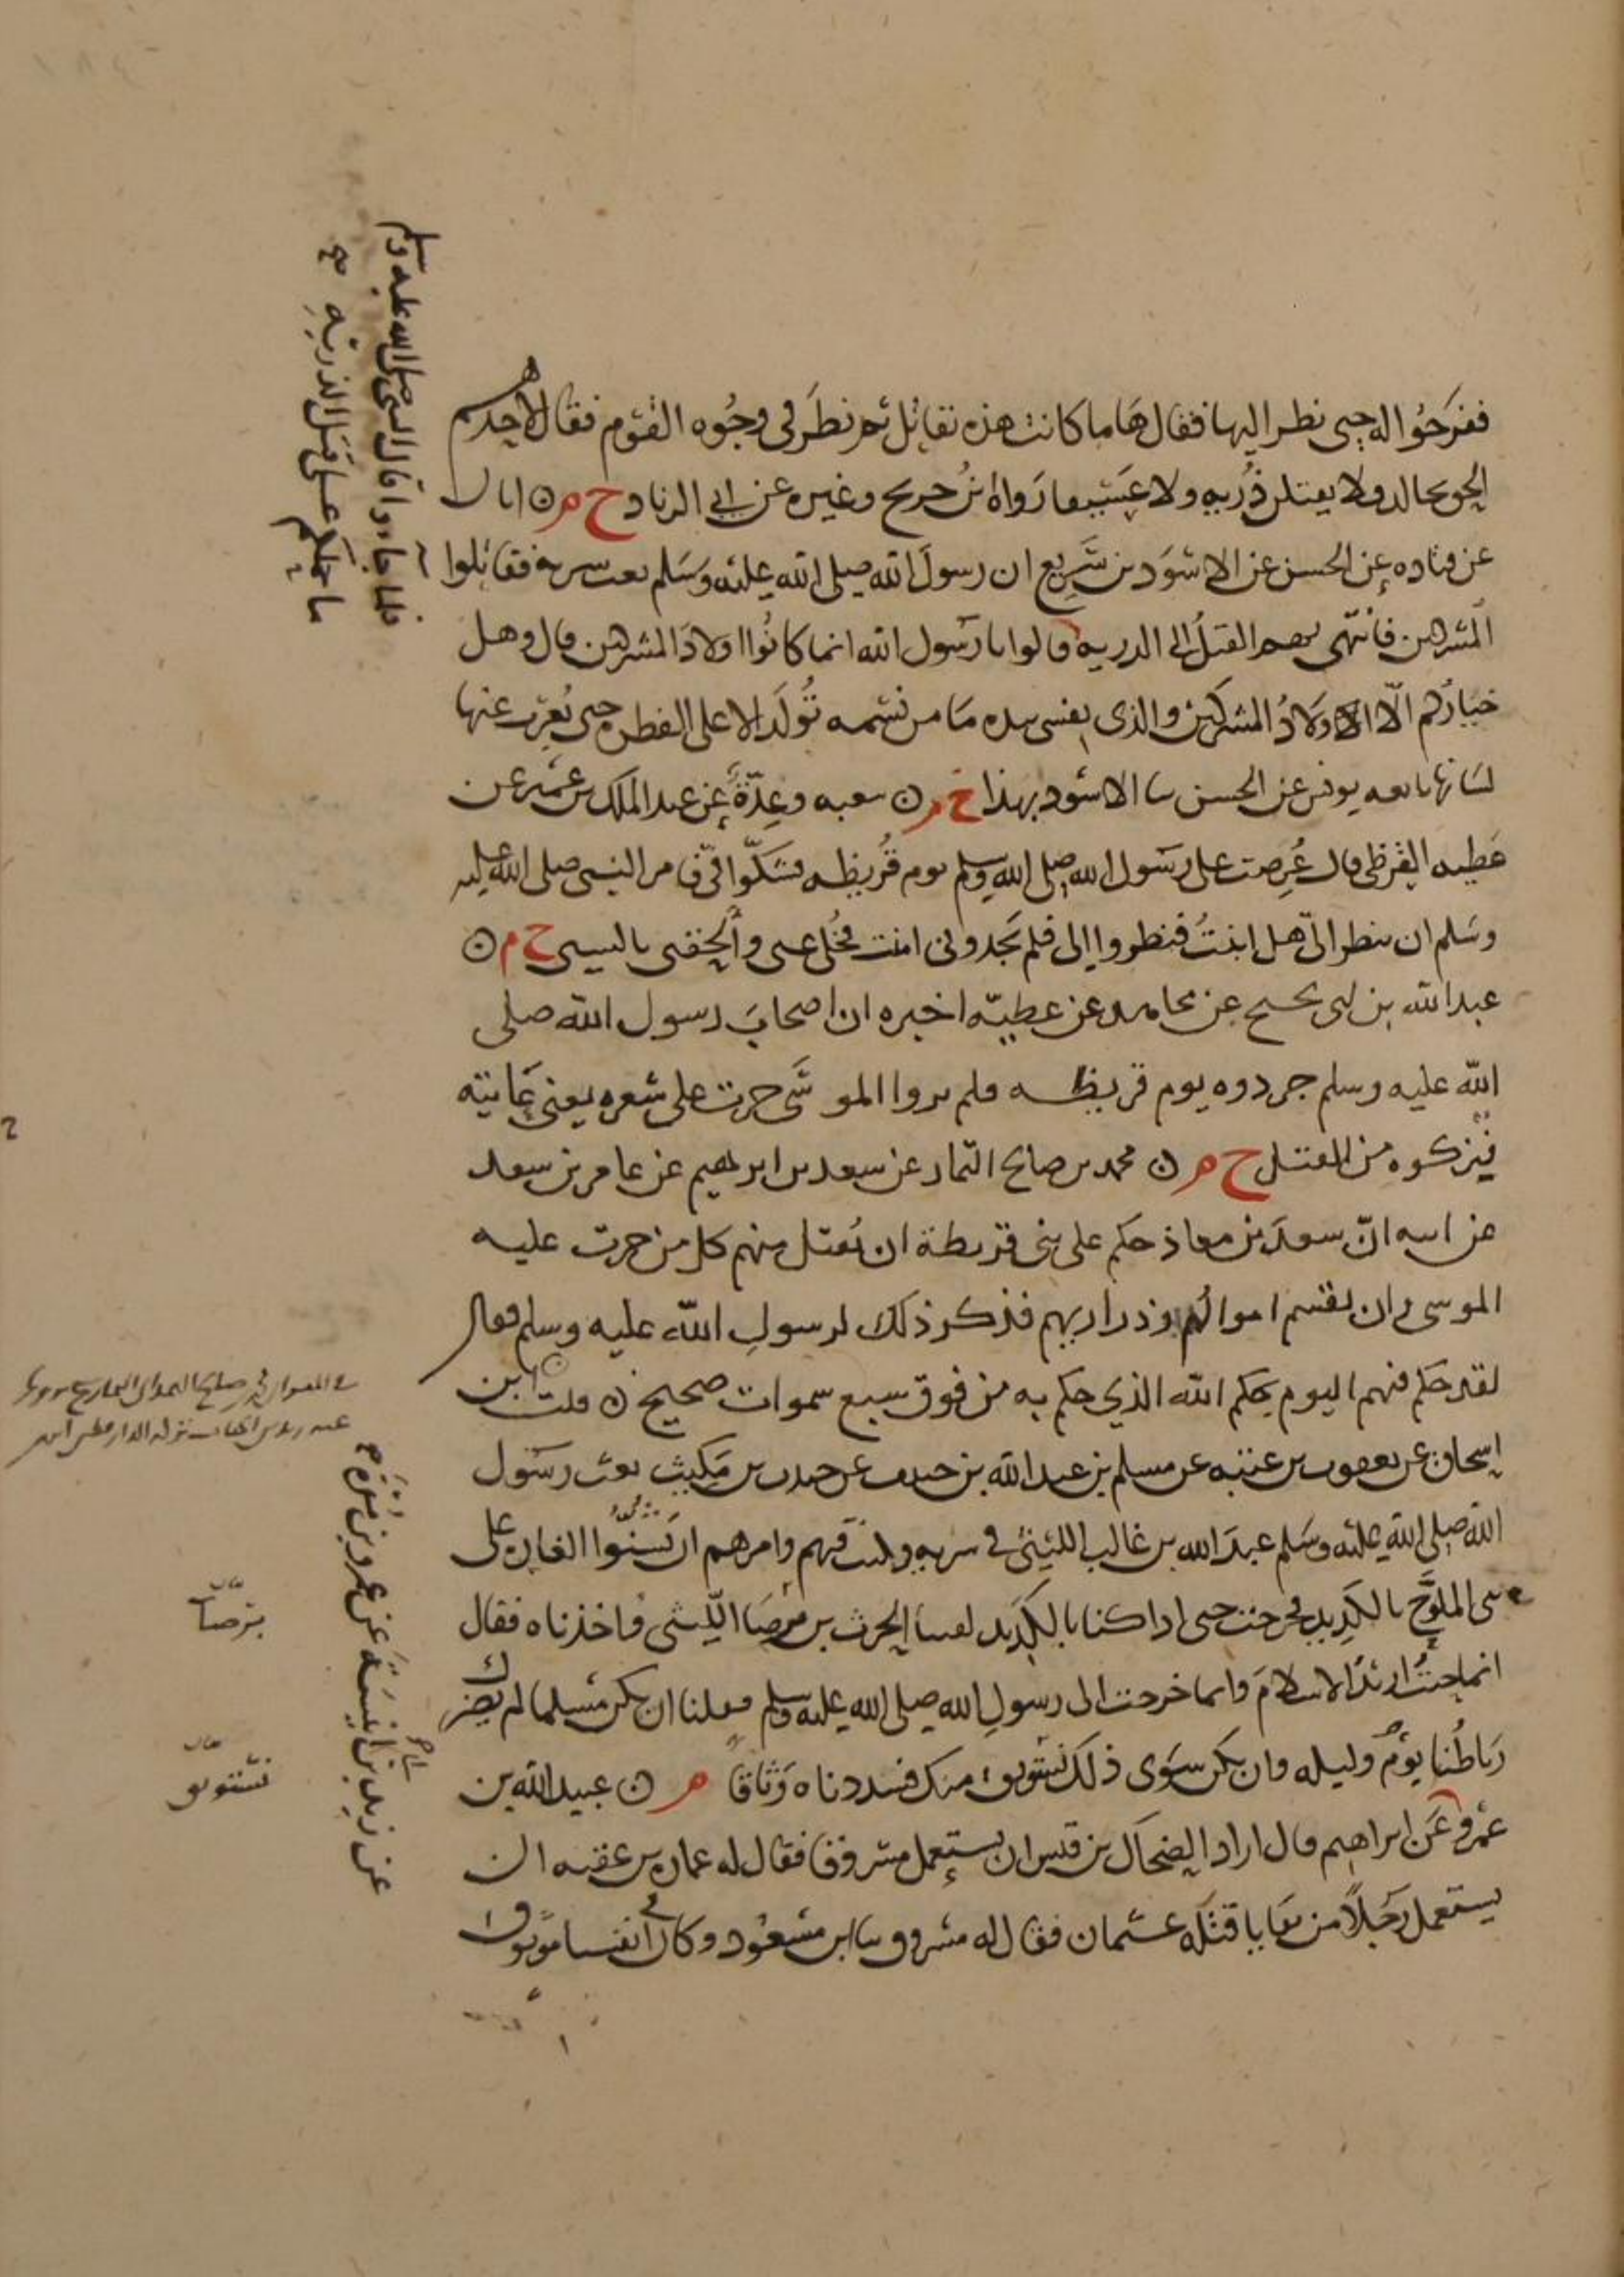 ففرجوا له حتى نظر اليها فقال ها ما كانت هذه تقاتل ثم نظر في وجوه القوم فقال لاحدهم
الحق بخالد ولا يقتلن ذرية ولا عسيفا رواه ابن جريج وغيره عن ابي الزناد خ م ن ابان
عن قتاده عن الحسن عن الاسود بن سريع ان رسول الله صلى الله عليه وسلم بعث سرية فقاتلوا
المشركين فانتهى بهم القتل الى الذرية قالوا يا رسول الله انما كانوا اولاد المشركين قال وهل
خياركم الا اولاد المشركين والذي نفسي بيده ما من نسمه تولد الا على الفطره حتى يعرب عنها
لسانها تابعه يونس عن الحسن ثنا الاسود بهذا خ م ن شعبه وعدة عن عبد الملك بن عمير عن
عطيه القرظي قال عرضت على رسول الله صلى الله وسلم يوم قريظه فشكوا في فامر النبي صلى الله عليه
وسلم ان ينظر الي هل انبت فنظروا الي فلم يجدوني انبت فخلى عني والحقني بالسبي خ م ن
عبد الله بن ابي نجيح عن مجاهد عن عطية اخبره ان اصحاب رسول الله صلى
الله عليه وسلم جردوه يوم قريظه فلم يروا الموسى جرت على شعره يعني عانته
فتركوه من القتل خ م ن محمد بن صالح التمار عن سعد بن ابرهيم عن عامر بن سعد
عن ابيه ان سعد بن معاذ حكم على بني قريظة ان يقتل منهم كل من جرت عليه
الموسى وان يقسم اموالهم وذراريهم فذكر ذلك لرسول الله عليه وسلم فقال
لقد حكم فيهم اليوم بحكم الله الذي حكم به من فوق سبع سموات صحيح ن قلت ابن
اسحاق عن يعقوب بن عتبه عن مسلم بن عبد الله بن خبيب عن جندب بن مكيث بعث رسول
الله صلى الله عليه وسلم عبد الله بن غالب الليثي في سريه وكنت فيهم وامرهم ان يشنوا الغارة على
بني الملوح بالكديد فخرجنا حتى اذا كنا بالكديد لقينا الحرث بن برصا الليثي فاخذناه فقال
انما جئت اريد الاسلام وانما خرجت الى رسول الله صلى الله عليه وسلم فقلنا ان يكن مسلما لم يضرك
رباطنا يوم وليله وان يكن سوى ذلك نستوثق منك فشددناه وثاقا م ن عبيد الله بن
عمرو عن ابراهيم قال اراد الضحاك بن قيس ان يستعمل مسروقا فقال له عمارة بن عقبه ان
يستعمل رجلا من بقايا قتله عثمان فقال له مسروق ثنا ابن مسعود وكان في انفسنا موثوق
فلما جاءوا قال النبي صلى الله عليه وسلم
ما حملكم على قتل الذرية صح
برصا
نستوثق
عن زيد بن ابي انيسة عن عمرو بن مرة صح